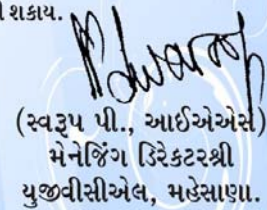 ી શકાય.
(સ્વરૂપ પી., આઈએએસ)
મેનેજિંગ ડિરેકટરશ્રી
યુજીવીસીએલ, મહેસાણા.